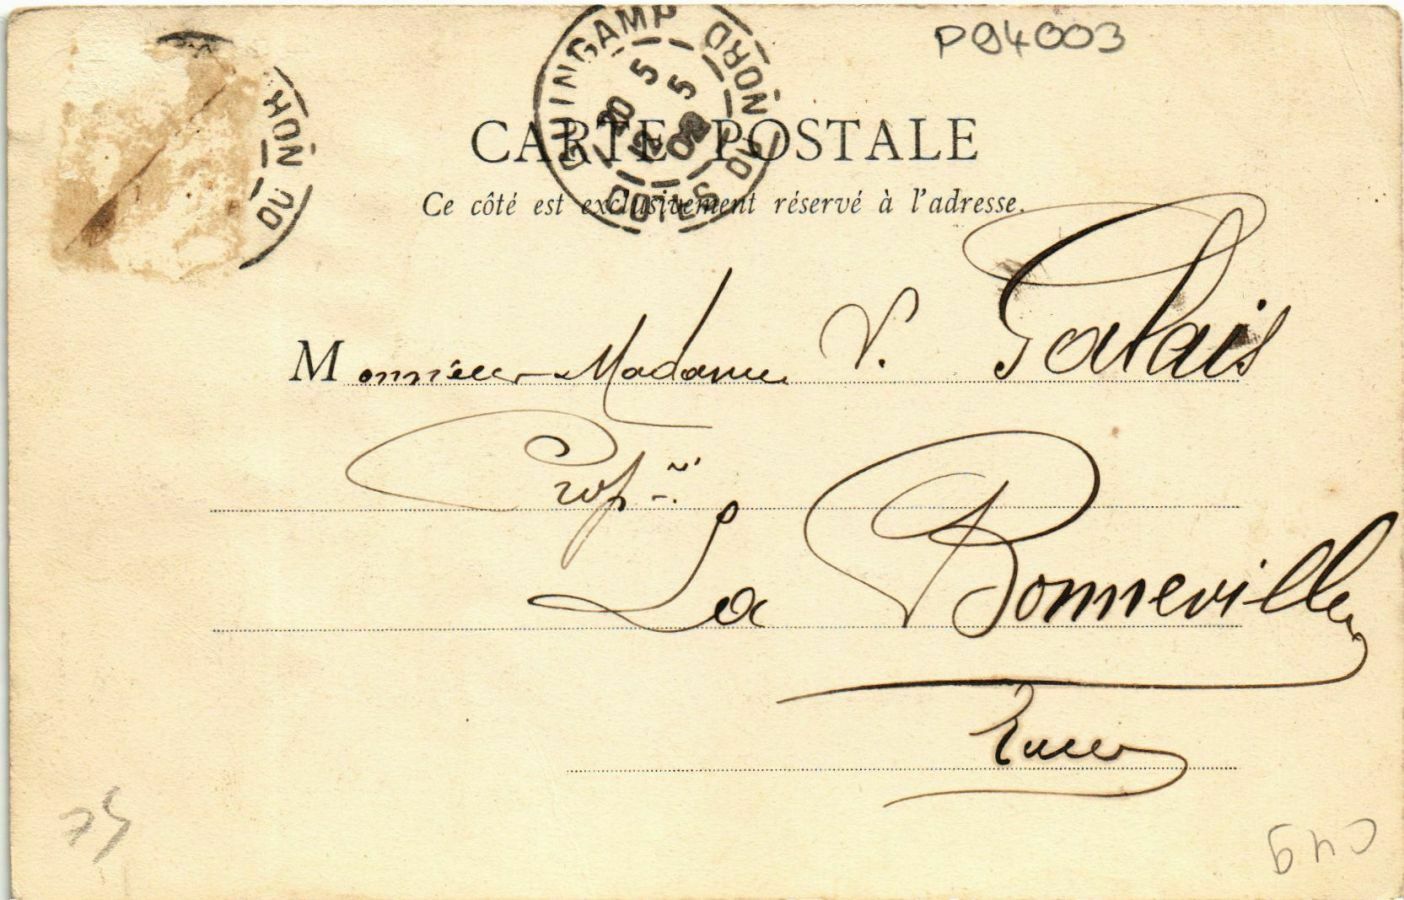 P94003
GUINGAMP
COTES DU NORD
20
5 5
12 02
DU NORD
CARTE POSTALE
Ce côté est exclusivement réservé à l'adresse.
Monsieur Madame V. Galais
Prop.re
La Bonneville
Eure